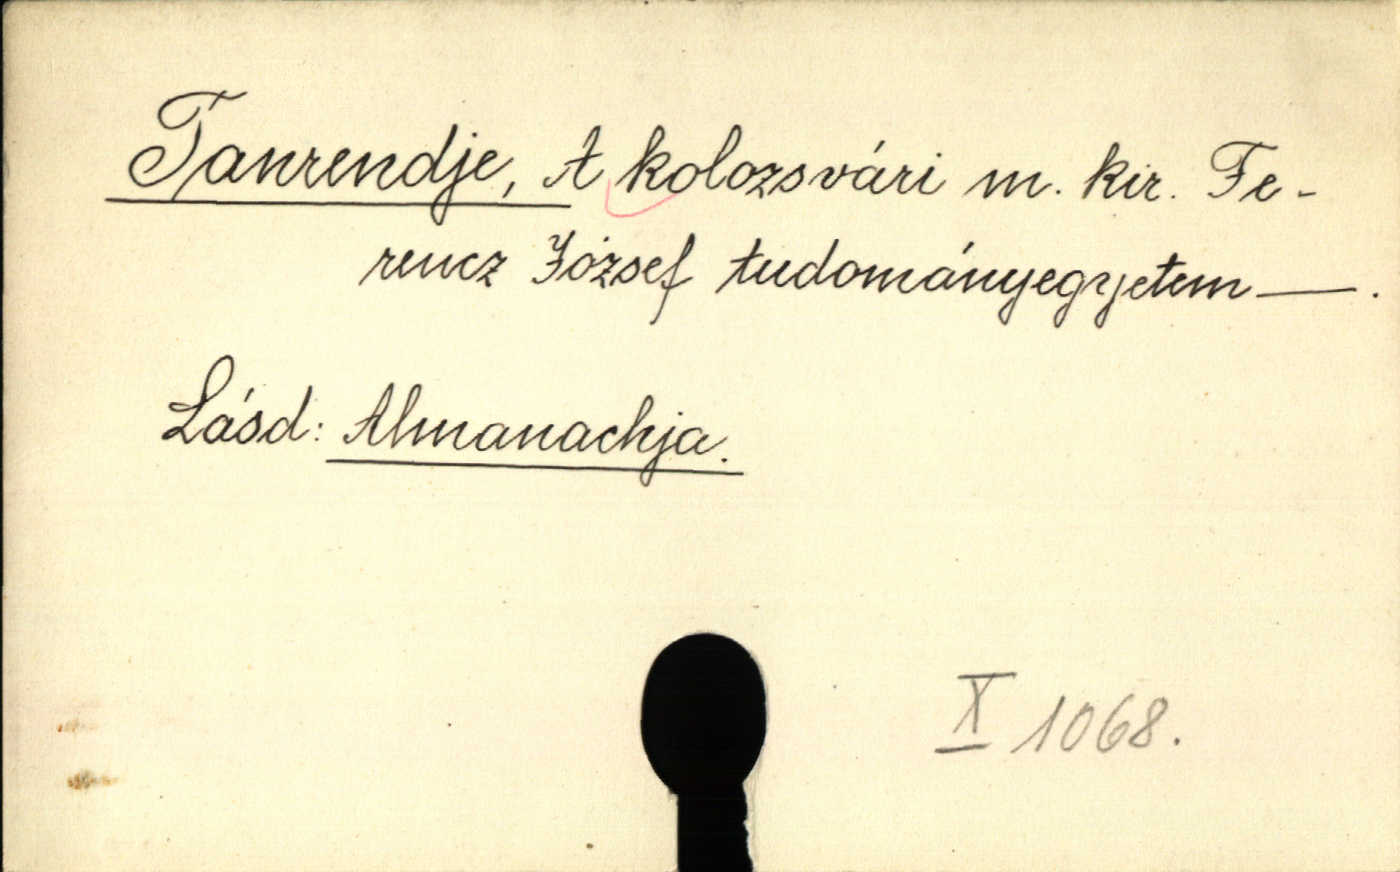 Tanrendje, A kolozsvári m. kir. Fe-
rencz József tudományegyetem — .
Lásd: Almanachja.
X 1068.